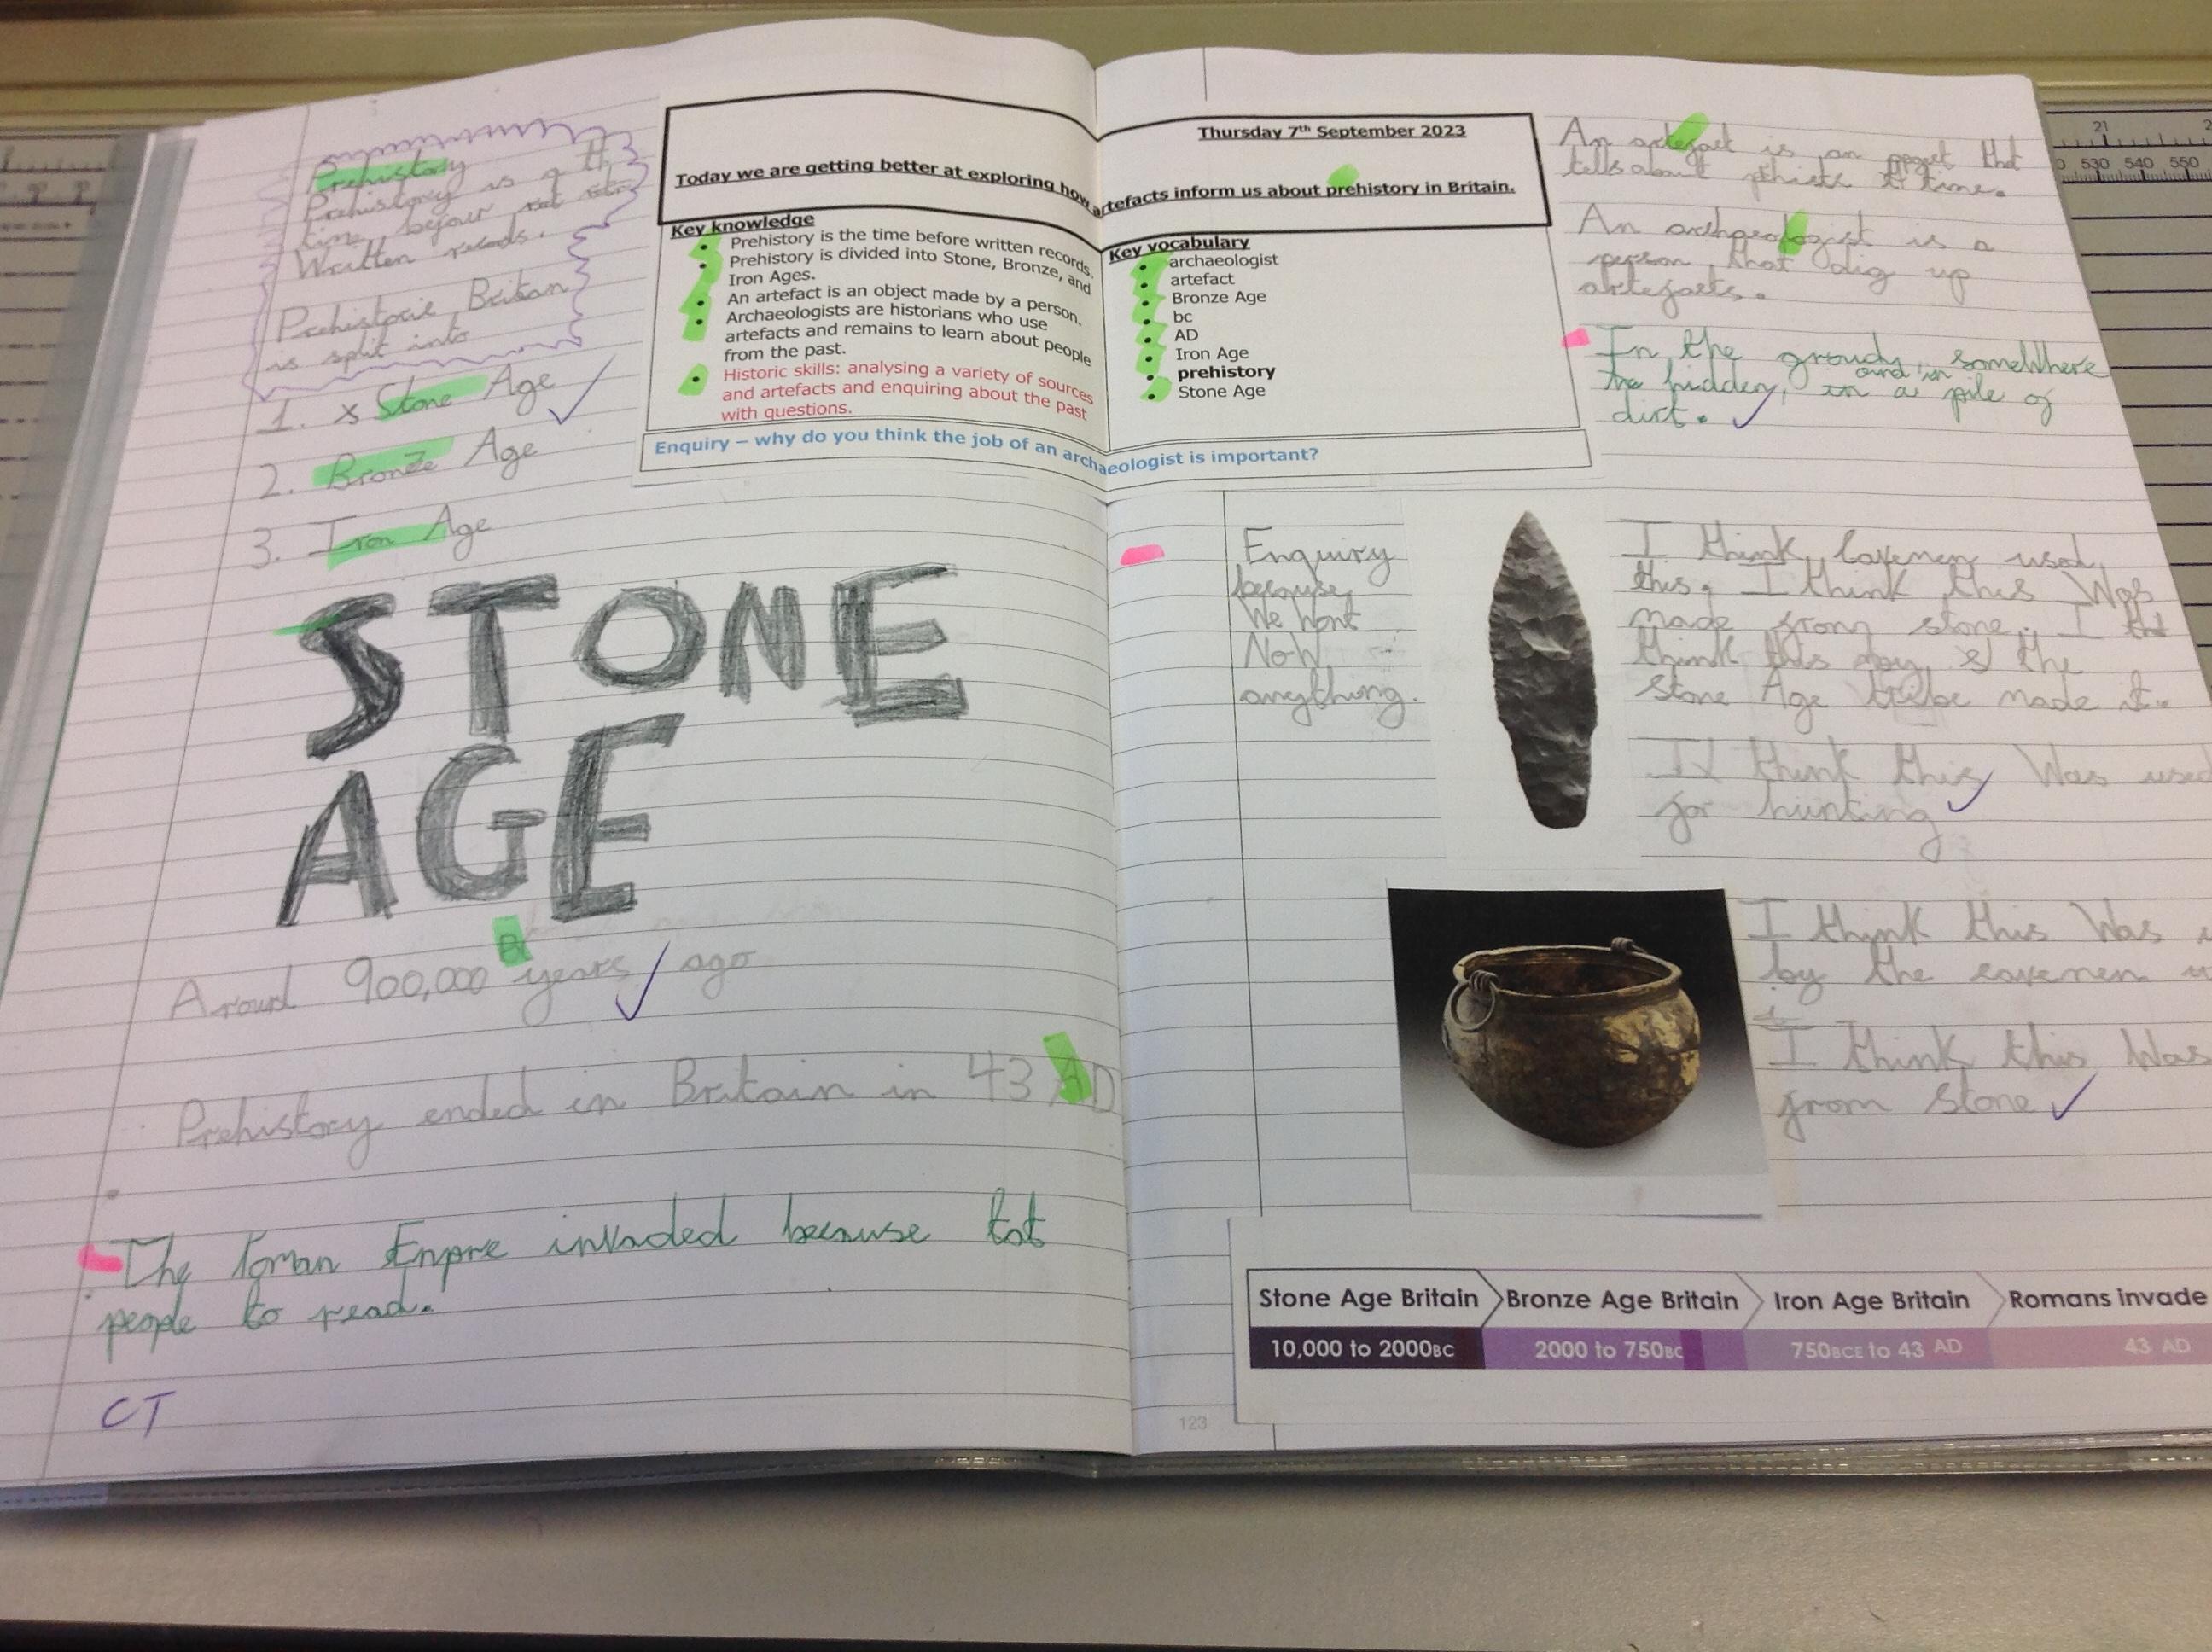 Prehistory
Prehistory is a
time before
Written records.
Prehistoric Britan
is split into
1. x Stone Age
2. Bronze Age
3. Iron Age
STONE
AGE
Around 900,000 years ago
Prehistory ended in Britain in 43 AD
The Roman Enpire invaded because tot
people to read.
CT
Thursday 7th September 2023
Today we are getting better at exploring how artefacts inform us about prehistory in Britain.
Key knowledge
• Prehistory is the time before written records.
• Prehistory is divided into Stone, Bronze, and
Iron Ages.
• An artefact is an object made by a person.
• Archaeologists are historians who use
artefacts and remains to learn about people
from the past.
• Historic skills: analysing a variety of sources
and artefacts and enquiring about the past
with questions.
Key vocabulary
• archaeologist
• artefact
• Bronze Age
• bc
• AD
• Iron Age
• prehistory
• Stone Age
Enquiry – why do you think the job of an archaeologist is important?
An artefact is an that
tells about time.
An archaeologist is a
person that dig up
artefacts.
In the groudn, somewhere
and in
hidden, in a pile of
dirt.
Enquiry
because
We Wont
Now
anything.
I think cavemen used
this. I think this Was
made from stone. I
think this the
Stone Age tribe made it.
I think this Was used
for hunting
I think this Was
by the cavemen
I think this Was
from stone
Stone Age Britain Bronze Age Britain Iron Age Britain Romans invade
10,000 to 2000BC 2000 to 750BC 750BCE to 43 AD 43 AD
123
21
530 540 550